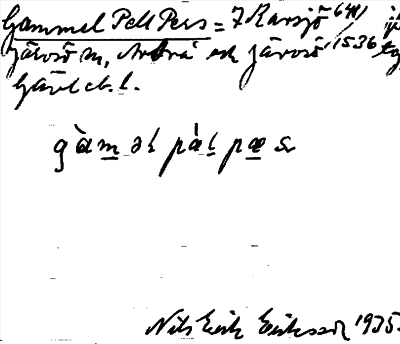 Gammel Pell Pers = 7 Karsjö 641/
Järvsö sn, Arbrå och Järvsö 1536
Gävleb. l.
gàməl pál pæs
Nils Erik Eriksson 1935.